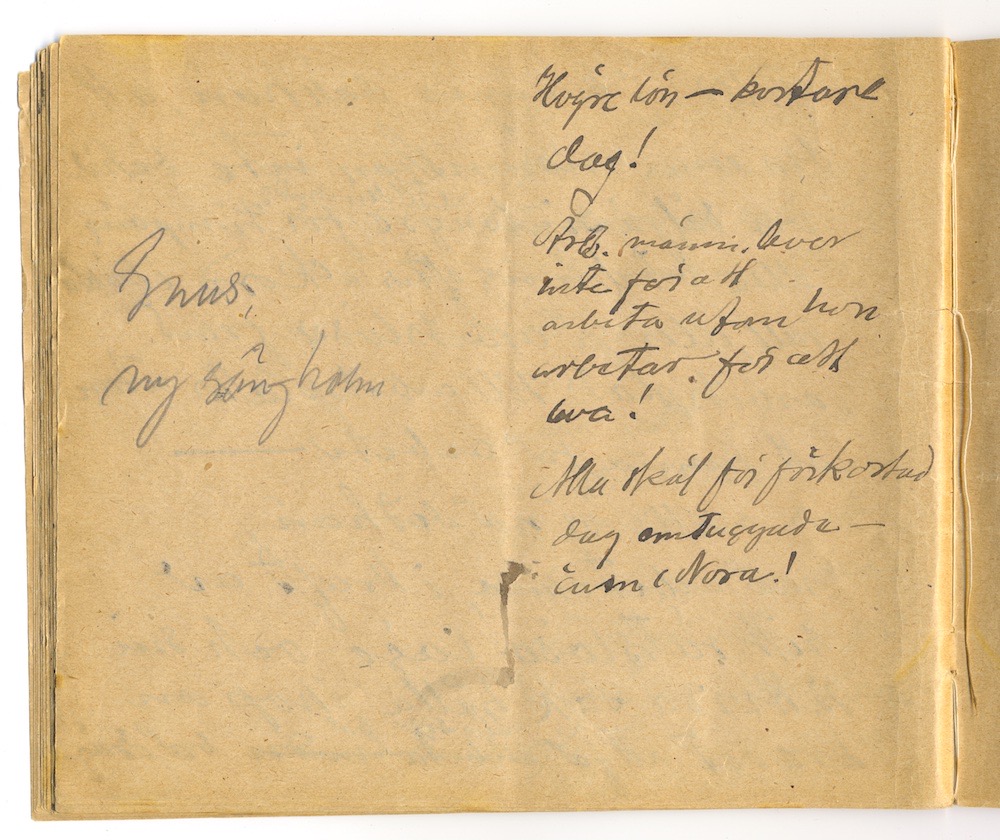 Snus,
ny sång holm
Högre lön — kortare
dag!
Arb. männ. lever
inte för att
arbeta utan hon
arbetar för att
leva!
Alla skäl för förkortad
dag omtuggade —
även Nora!